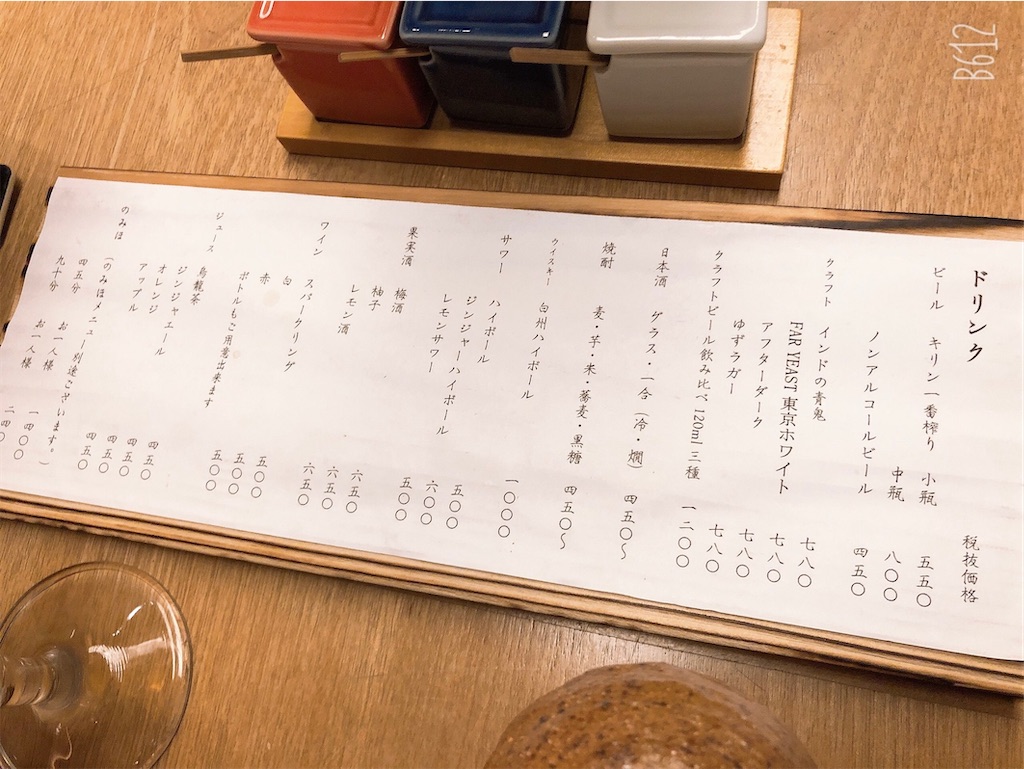 ドリンク 税抜価格
ビール キリン一番搾り 小瓶 五五〇
中瓶 八〇〇
ノンアルコールビール 四五〇
クラフト インドの青鬼 七八〇
FAR YEAST 東京ホワイト 七八〇
アフターダーク 七八〇
ゆずラガー 七八〇
クラフトビール飲み比べ 120ml 三種 一二〇〇
日本酒 グラス・一合(冷・燗) 四五〇〜
焼酎 麦・芋・米・蕎麦・黒糖 四五〇〜
ウイスキー 白州ハイボール 一〇〇〇
サワー ハイボール 五〇〇
ジンジャーハイボール 六〇〇
レモンサワー 五〇〇
果実酒 梅酒 六五〇
柚子 六五〇
レモン酒 六五〇
ワイン スパークリング 五〇〇
白 五〇〇
赤 五〇〇
ボトルもご用意出来ます
ジュース 烏龍茶 四五〇
ジンジャエール 四五〇
オレンジ 四五〇
アップル 四五〇
のみほ (のみほメニュー別途ございます。)
四五分 お一人様 一四〇〇
九十分 お一人様 二四〇
B612